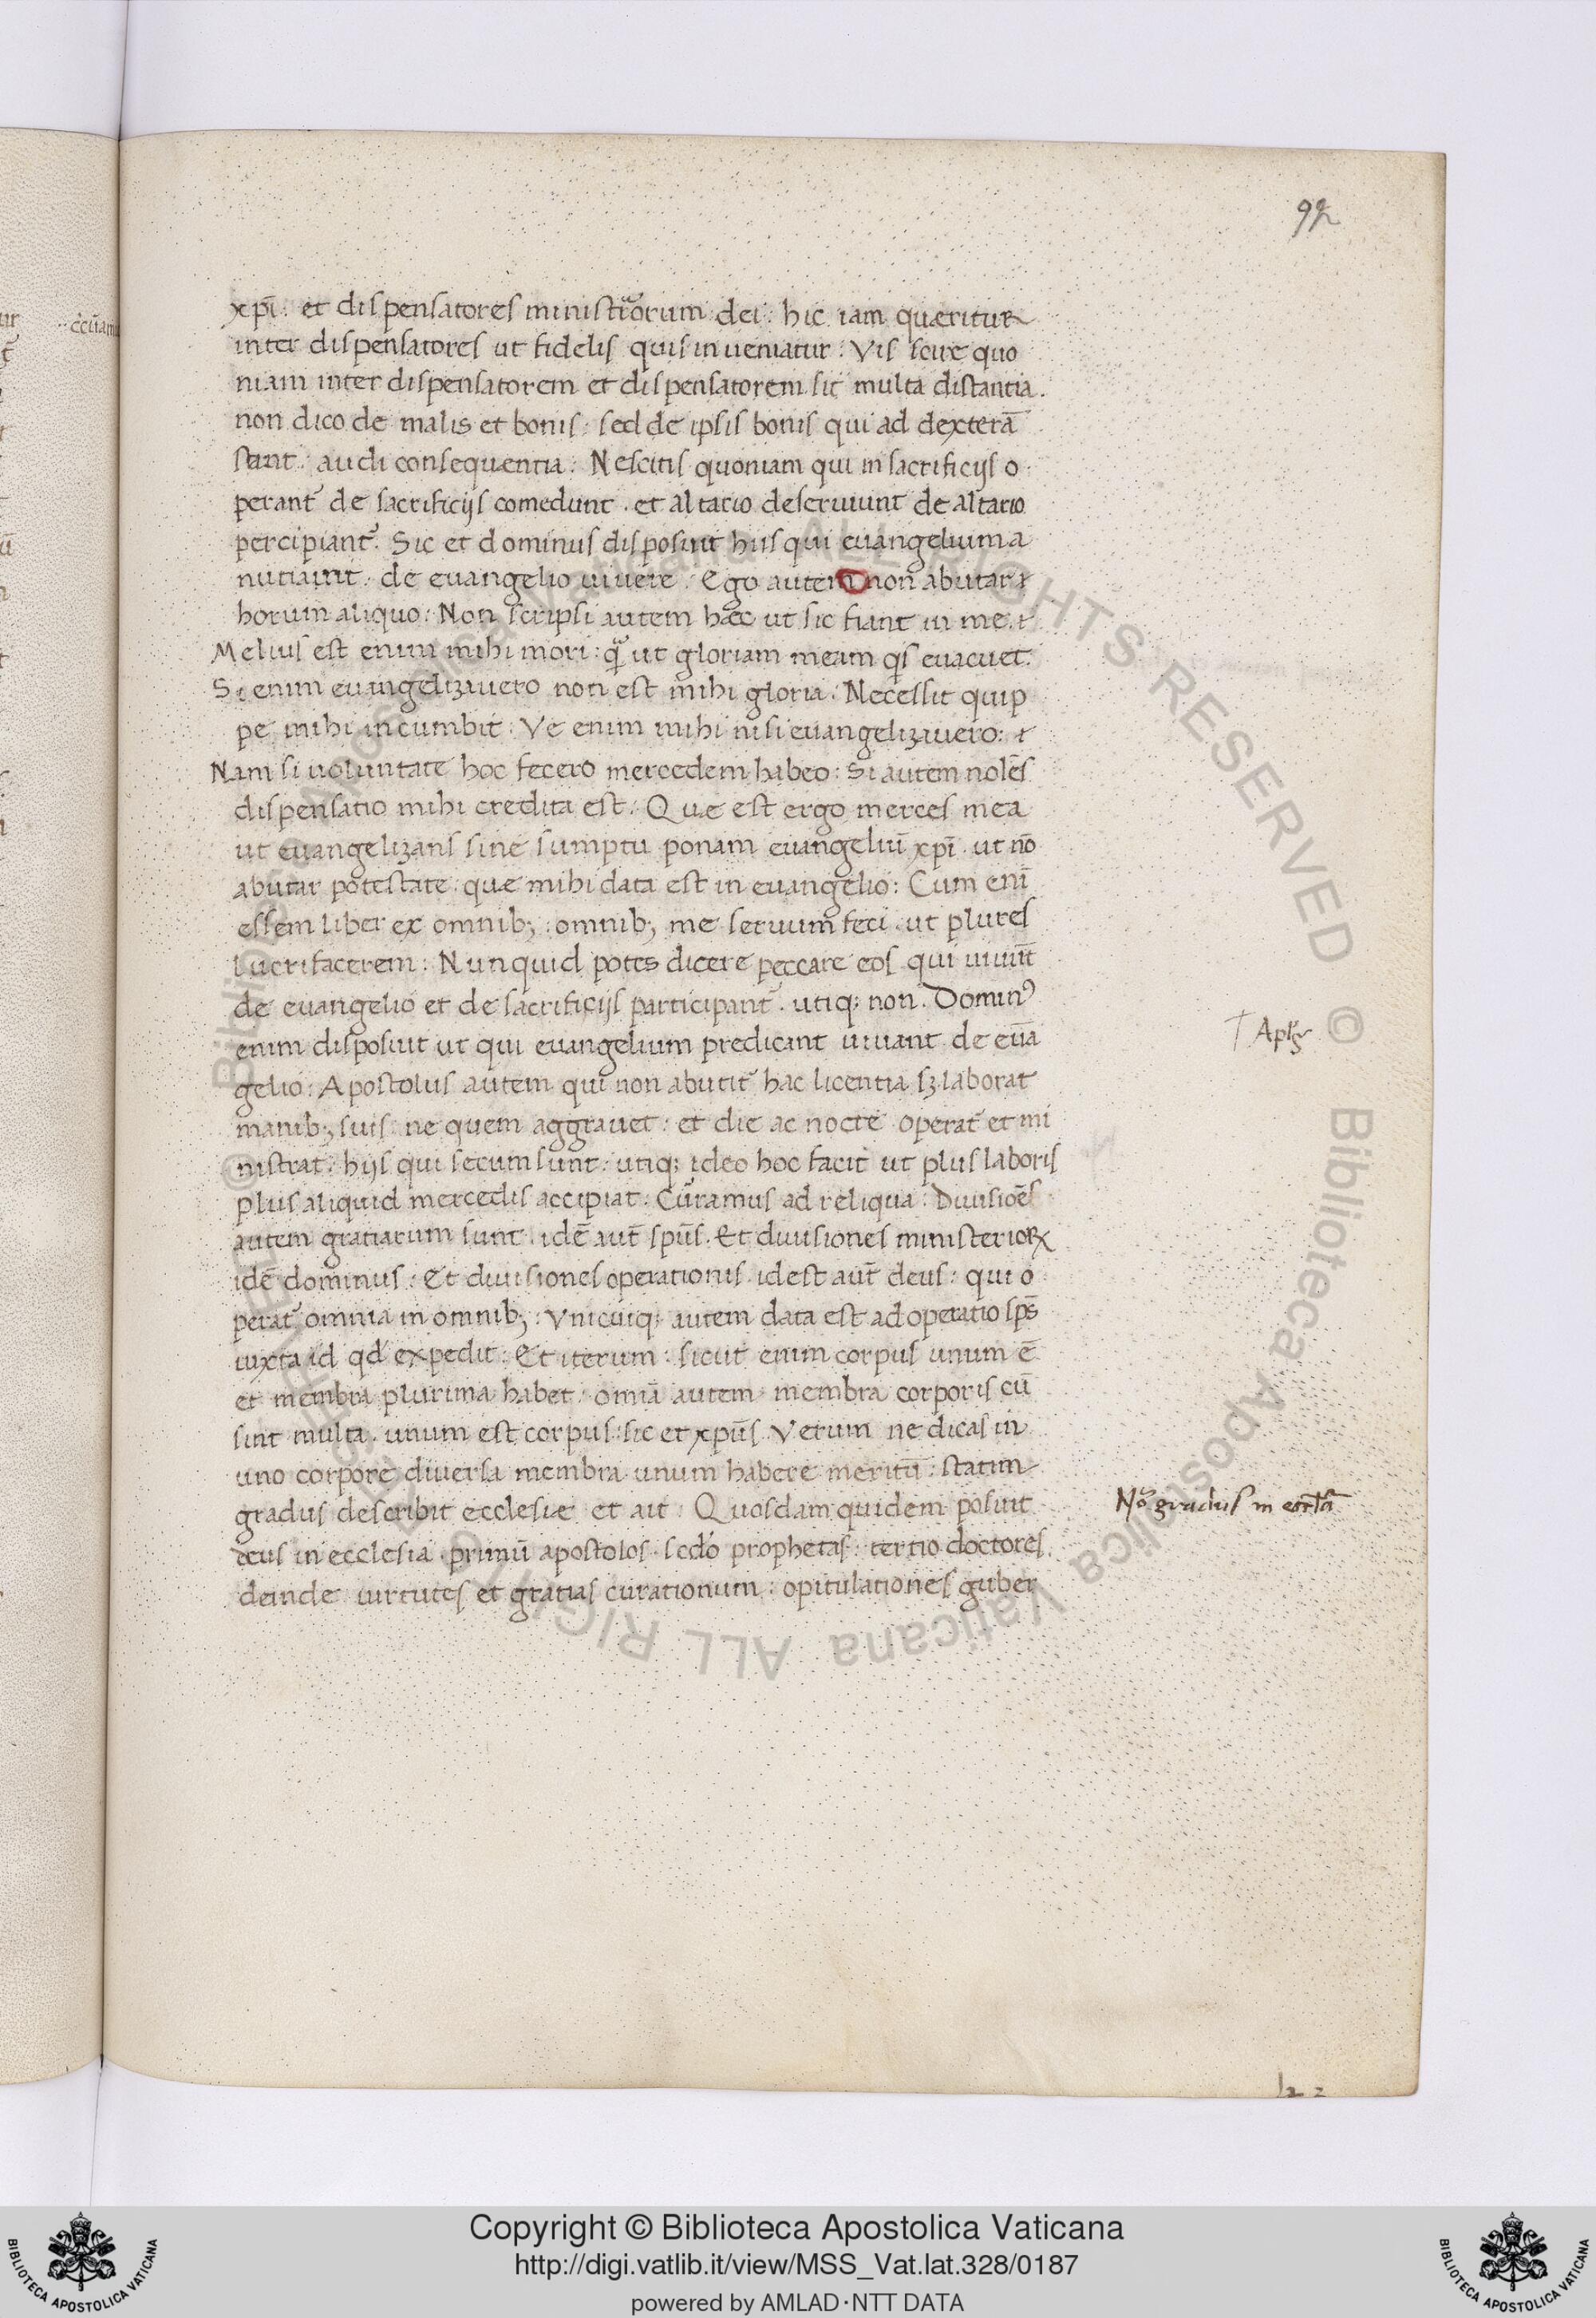 92
xp̄i : et dispensatores ministrorum dei : hic iam quæritur
inter dispensatores ut fidelis quis inueniatur : Vis scire quo
niam inter dispensatorem et dispensatorem sit multa distantia .
non dico de malis et bonis : sed de ipsis bonis qui ad dexterā
stant : audi consequentia : Nescitis quoniam qui in sacrificijs o
perant̄ de sacrificijs comedunt . et altario deseruiunt de altario
percipiant̄ . Sic et dominus disposuit hiis qui euangelium a
nutiaunt : de euangelio uiuere : Ego autem non abutar
horum aliquo : Non scripsi autem hæc ut sic fiant in me .
Melius est enim mihi mori : q̄ ut gloriam meam qs euacuet .
Si enim euangelizauero non est mihi gloria : Necessit quip
pe mihi incumbit : Ve enim mihi nisi euangelizauero :
Nam si uoluntate hoc fecero mercedem habeo : Si autem nolēs
dispensatio mihi credita est : Quæ est ergo merces mea
ut euangelizans sine sumptu ponam euangeliū xp̄i . ut nō
abutar potestate : quæ mihi data est in euangelio : Cum enī
essem liber ex omnib; : omnib; me seruum feci . ut plures
lucrifacerem : Nunquid potes dicere peccare eos qui uiuūt
de euangelio et de sacrificijs participant̄ . utiq; non . Domin⁹
enim disposuit ut qui euangelium predicant uiuant de euā
gelio : Apostolus autem qui non abutit̄ hac licentia sꝫ laborat
manib; suis ne quem aggrauet : et die ac nocte operat̄ et mi
nistrat : hijs qui secum sunt : utiq; ideo hoc facit ut plus laboris
plus aliquid mercedis accipiat : Curramus ad reliqua : Diuisiōes
autem gratiarum sunt : idē aut̄ sp̄us . Et diuisiones ministerioꝝ
idē dominus : Et diuisiones operationis . idest aut̄ deus : qui o
perat̄ omnia in omnib; : Vnicuiq; autem data est adoperatio sp̄s
iuxta id qd̄ expedit : Et iterum : sicut enim corpus unum ē
et membra plurima habet : omīa autem membra corporis cū
sint multa . unum est corpus : sic et xp̄us . Verum ne dicas in
uno corpore diuersa membra unum habere meritū : statim
gradus describit ecclesiæ et ait : Quosdam quidem posuit
deus in ecclesia : primū apostolos . scd̄o prophetas : tertio doctores .
deinde uirtutes et gratias curationum : opitulationes guber
Nō gradus in eccl̄ia
© Biblioteca Apostolica Vaticana ALL RIGHTS RESERVED
Copyright © Biblioteca Apostolica Vaticana
http://digi.vatlib.it/view/MSS_Vat.lat.328/0187
powered by AMLAD·NTT DATA
BIBLIOTECA APOSTOLICA VATICANA
BIBLIOTECA APOSTOLICA VATICANA